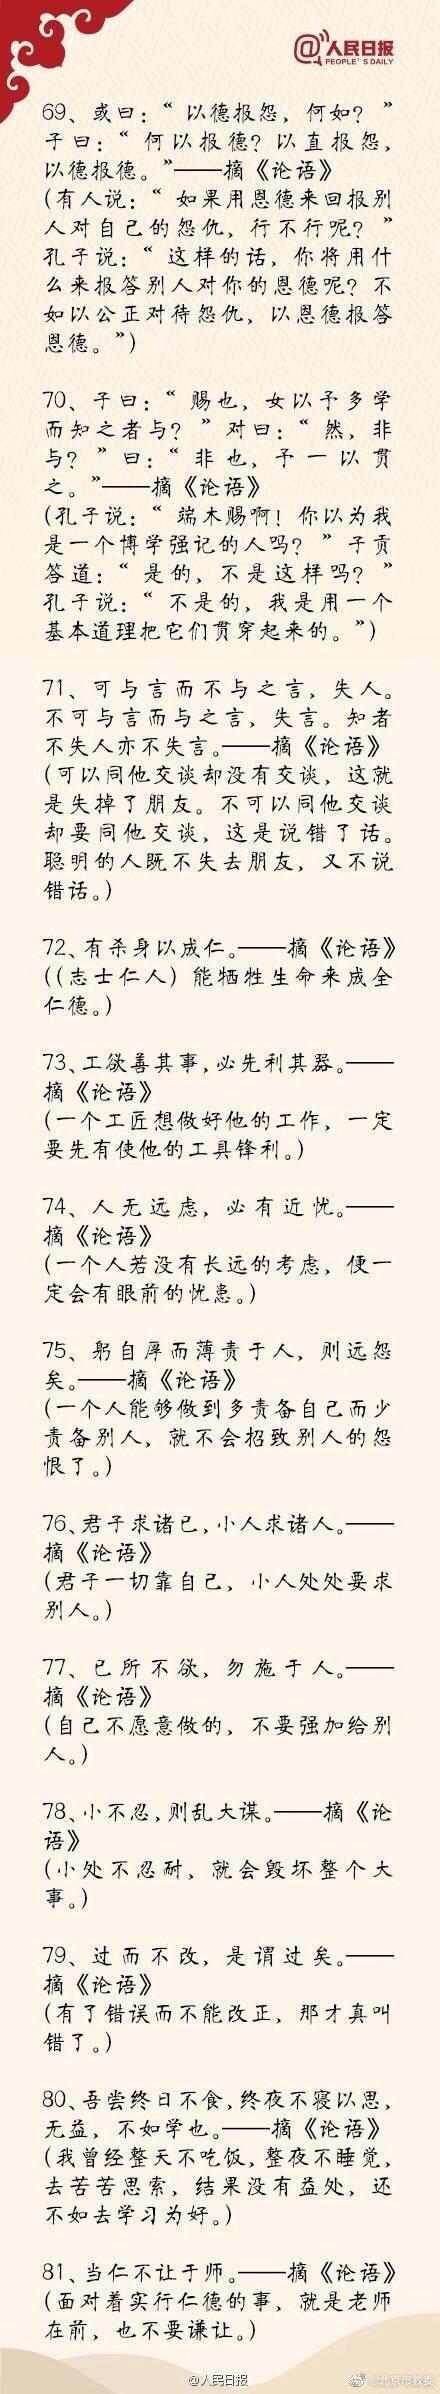 @人民日报
PEOPLE'S DAILY
69、或曰：“以德报怨，何如？”
子曰：“何以报德？以直报怨，
以德报德。”——摘《论语》
(有人说：“如果用恩德来回报别
人对自己的怨仇，行不行呢？”
孔子说：“这样的话，你将用什
么来报答别人对你的恩德呢？不
如以公正对待怨仇，以恩德报答
恩德。”)
70、子曰：“赐也，女以予多学
而知之者与？”对曰：“然，非
与？”曰：“非也，予一以贯
之。”——摘《论语》
(孔子说：“端木赐啊！你以为我
是一个博学强记的人吗？”子贡
答道：“是的，不是这样吗？”
孔子说：“不是的，我是用一个
基本道理把它们贯穿起来的。”)
71、可与言而不与之言，失人。
不可与言而与之言，失言。知者
不失人亦不失言。——摘《论语》
(可以同他交谈却没有交谈，这就
是失掉了朋友。不可以同他交谈
却要同他交谈，这是说错了话。
聪明的人既不失去朋友，又不说
错话。)
72、有杀身以成仁。——摘《论语》
((志士仁人）能牺牲生命来成全
仁德。)
73、工欲善其事，必先利其器。——
摘《论语》
(一个工匠想做好他的工作，一定
要先有使他的工具锋利。)
74、人无远虑，必有近忧。——
摘《论语》
(一个人若没有长远的考虑，便一
定会有眼前的忧患。)
75、躬自厚而薄责于人，则远怨
矣。——摘《论语》
(一个人能够做到多责备自己而少
责备别人，就不会招致别人的怨
恨了。)
76、君子求诸已，小人求诸人。——
摘《论语》
(君子一切靠自己，小人处处要求
别人。)
77、已所不欲，勿施于人。——
摘《论语》
(自己不愿意做的，不要强加给别
人。)
78、小不忍，则乱大谋。——摘《论
语》
(小处不忍耐，就会毁坏整个大
事。)
79、过而不改，是谓过矣。——
摘《论语》
(有了错误而不能改正，那才真叫
错了。)
80、吾尝终日不食，终夜不寝以思，
无益，不如学也。——摘《论语》
(我曾经整天不吃饭，整夜不睡觉，
去苦苦思索，结果没有益处，还
不如去学习为好。)
81、当仁不让于师。——摘《论语》
(面对着实行仁德的事，就是老师
在前，也不要谦让。)
@人民日报
@北京市教委